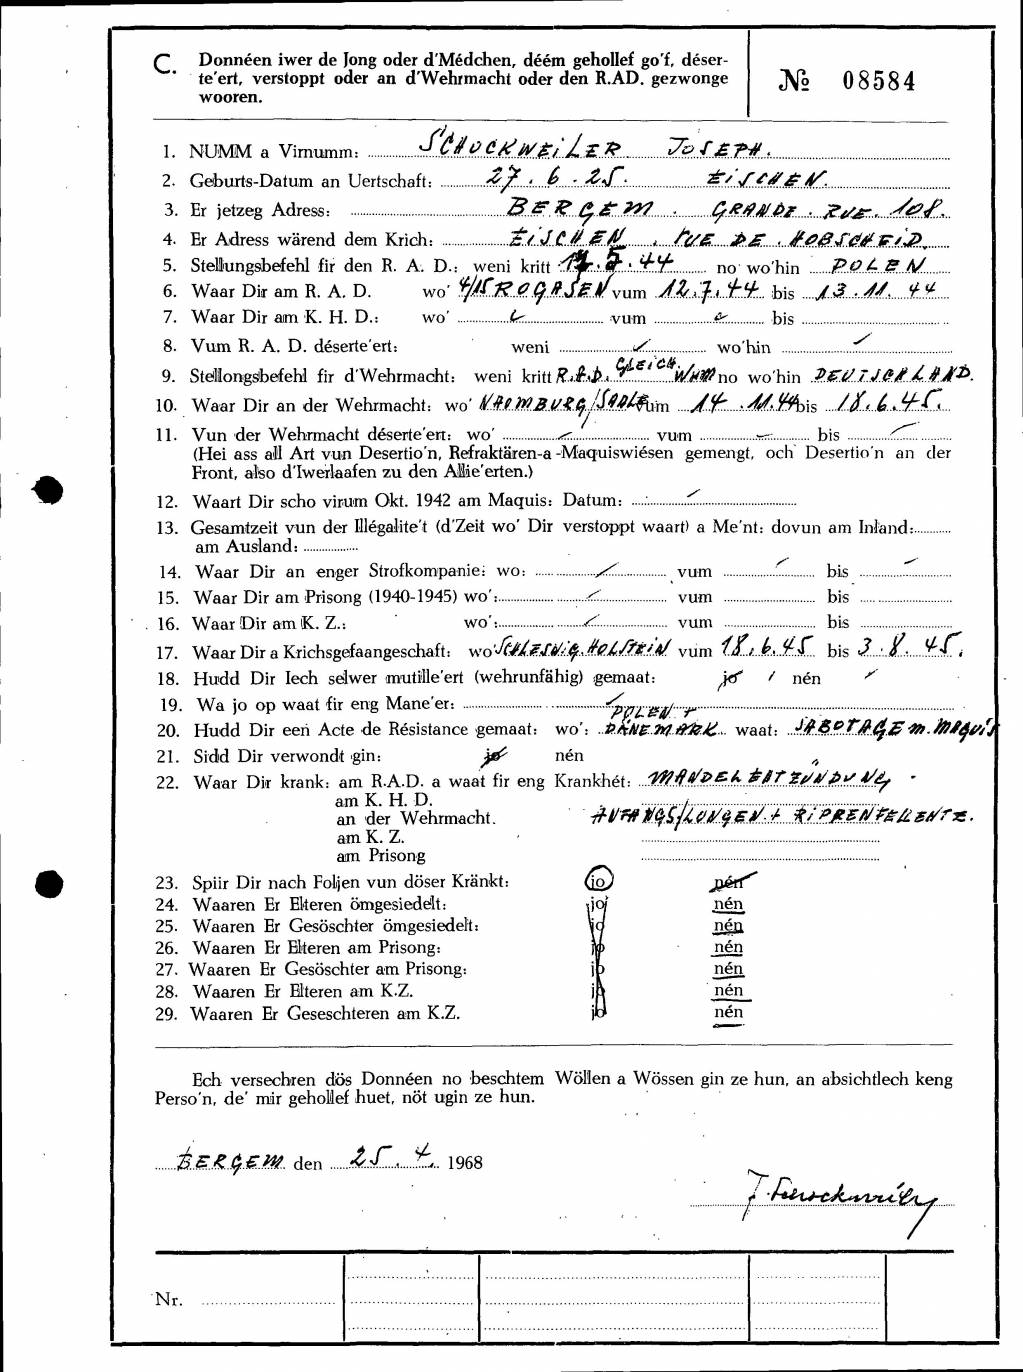 C. Donnéen iwer de Jong oder d'Médchen, déém gehollef go'f, déser-
te'ert, verstoppt oder an d'Wehrmacht oder den R.AD. gezwonge
wooren.
№ 08584
1. NUMM a Virnumm: SCHOCKWEiLER JOSEPH.
2. Geburts-Datum an Uertschaft: 27.6.25. EiSCHEN.
3. Er jetzeg Adress: BERGEM. GRANDE.RUE.108.
4. Er Adress wärend dem Krich: EiSCHEN, RUE DE HOBSCHEID.
5. Stellungsbefehl fir den R. A. D.: weni kritt .5.44 no wo'hin POLEN
6. Waar Dir am R. A. D. wo' 4/15 ROGASEN vum 12.7.44 bis 13.11.44
7. Waar Dir am K. H. D.: wo' vum bis
8. Vum R. A. D. déserte'ert: weni wo'hin
9. Stellongsbefehl fir d'Wehrmacht: weni kritt R.A.D. GLEiCH WHM no wo'hin DEUTSCHLAND.
10. Waar Dir an der Wehrmacht: wo' NAOMBURG/SAALE vum 14.11.44 bis 18.6.45.
11. Vun der Wehrmacht déserte'ert: wo' vum bis
(Hei ass all Art vun Desertio'n, Refraktären-a-Maquiswiésen gemengt, och Desertio'n an der
Front, also d'Iwerlaafen zu den Allie'erten.)
12. Waart Dir scho virum Okt. 1942 am Maquis: Datum:
13. Gesamtzeit vun der Illégalite't (d'Zeit wo' Dir verstoppt waart) a Me'nt: dovun am Inland:
am Ausland:
14. Waar Dir an enger Strofkompanie: wo: vum bis
15. Waar Dir am Prisong (1940-1945) wo': vum bis
16. Waar Dir am K. Z.: wo': vum bis
17. Waar Dir a Krichsgefaangeschaft: wo' SCHLESWiG.HOLSTEiN vum 18.6.45 bis 3.8.45.
18. Hudd Dir Iech selwer mutille'ert (wehrunfähig) gemaat: jo nén
19. Wa jo op waat fir eng Mane'er:
20. Hudd Dir een Acte de Résistance gemaat: wo': POLEN + DÄNEMARK waat: SABOTAGE m. MAQUiS
21. Sidd Dir verwondt gin: jo nén
22. Waar Dir krank: am R.A.D. a waat fir eng Krankhét: MANDELENTZÜNDUNG.
am K. H. D.
an der Wehrmacht. ANFANGS/LUNGEN + RiPPENFELLENTZ.
am K. Z.
am Prisong
23. Spiir Dir nach Foljen vun döser Kränkt: jo nén
24. Waaren Er Elteren ömgesiedelt: jo nén
25. Waaren Er Gesöschter ömgesiedelt: jo nén
26. Waaren Er Elteren am Prisong: jo nén
27. Waaren Er Gesöschter am Prisong: jo nén
28. Waaren Er Elteren am K.Z. jo nén
29. Waaren Er Geseschteren am K.Z. jo nén
Ech versechren dös Donnéen no beschtem Wöllen a Wössen gin ze hun, an absichtlech keng
Perso'n, de' mir gehollef huet, nöt ugin ze hun.
BERGEM den 25.4. 1968
J. Schockweiler
Nr.